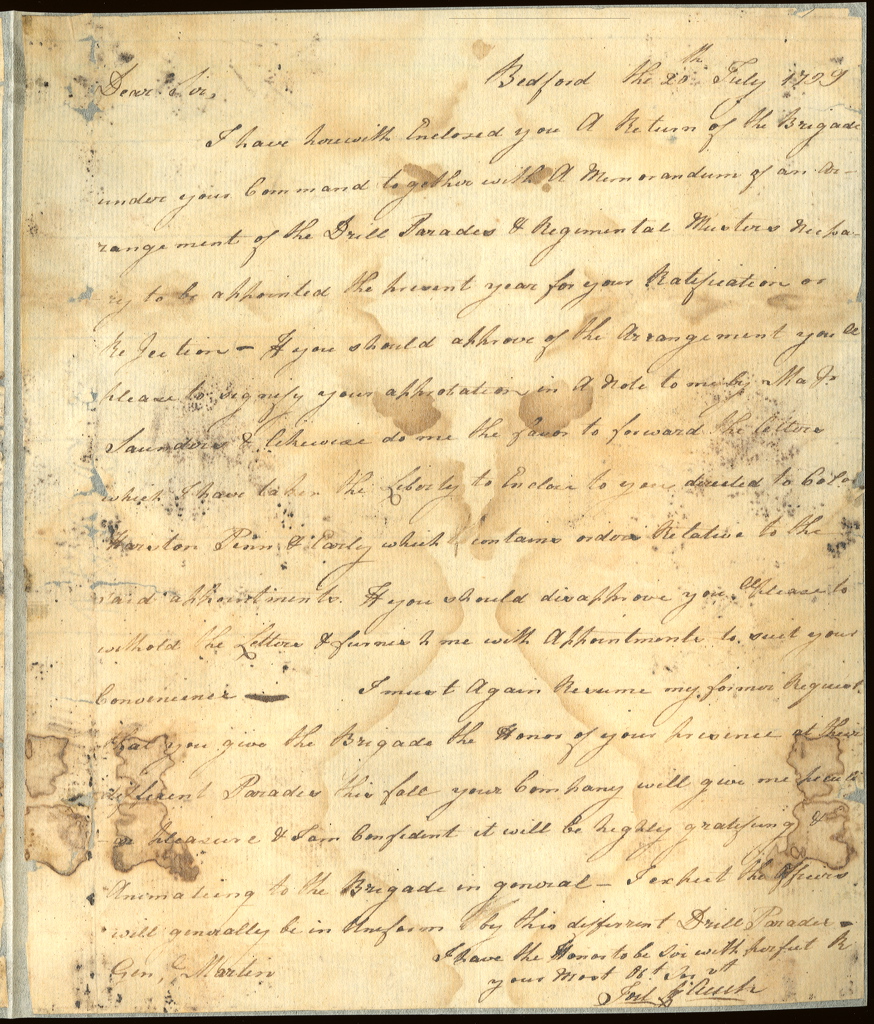 Bedford the 20th July 1799
Dear Sir,
I have herewith Enclosed you A Return of the Brigade
under your Command together with A Memorandum of an Ar-
rangement of the Drill Parades & Regimental Musters necessa-
ry to be appointed the present year for your Ratification or
Rejection – If you should approve of the Arrangement you'll
please to signify your approbation in A Note to me by Majr
Saunders & likewise do me the favor to forward the letters
which I have taken the Liberty to Enclose to you, directed to Colos
Hairston Penn & Early which contains orders Relative to the
said appointments. If you should disapprove you'll please to
withold the Letters & furnish me with Appointments to suit your
Convenience — I must Again Resume my former Request
that you give the Brigade the Honor of your presence at their
different Parades this fall your Company will give me peculi
-ar pleasure & I am Confident it will be highly gratifying &
Animating to the Brigade in general – I expect the officers
will generally be in Uniform by this different Drill Parades –
I have the Honor to be Sir with perfect R
Genl Martin
your Most Obt Servt